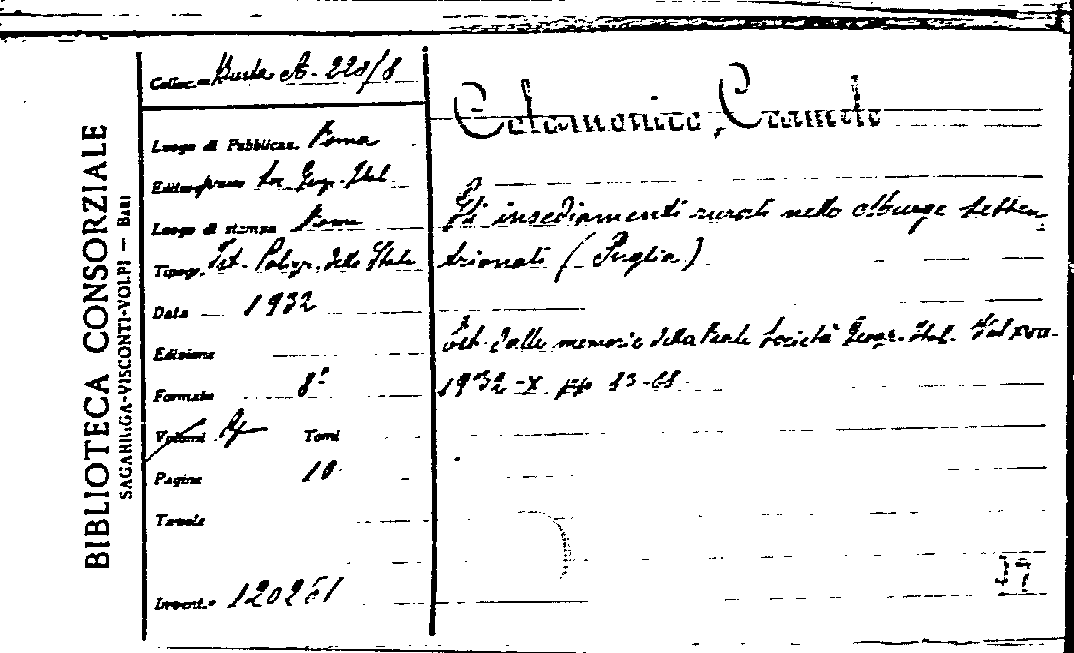 BIBLIOTECA CONSORZIALE
SAGARRIGA-VISCONTI-VOLPI — BARI
Colloc. Busta A-220/8
Luogo di Pubblicaz. Roma
Editore presso Soc. Geogr. Ital.
Luogo di stampa Roma
Tipogr. Ist. Poligr. dello Stato
Data 1932
Edizione
Formato 8º
Volumi Tomi
Pagine
Tavole
Invent.º 120261
Colamonico, Carmelo
Gli insediamenti rurali nelle Murge Setten-
trionali (Puglia)
Est. dalle memorie della Reale Società Geogr. Ital. Vol XVII-
1932-X. pp